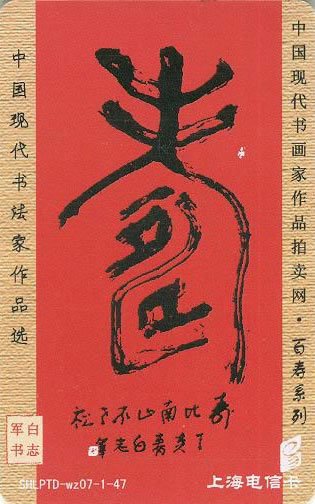 中国现代书画家作品拍卖网·百寿系列
中国现代书法家作品选
寿
寿比南山不老松
丁亥春白志军
白志
军书
SHLPTD-wz07-1-47
上海电信卡